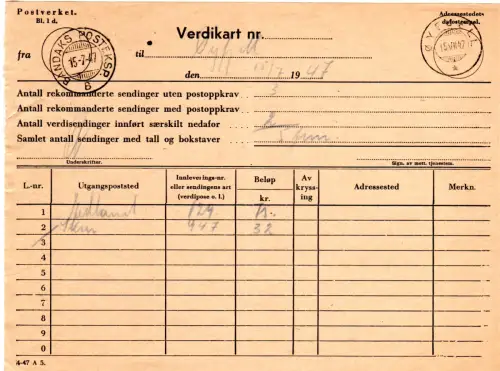 Postverket.
Bl. 1 d.
Adressestedets
datostempel.
Verdikart nr.
SANDAKS POSTEKSP.
15-7-47
B
fra til
den 15/7 1947
Antall rekommanderte sendinger uten postoppkrav 3
Antall rekommanderte sendinger med postoppkrav
Antall verdisendinger innført særskilt nedafor 2
Samlet antall sendinger med tall og bokstaver 5 fem
Underskrifter. Sign. av mott. tjenestem.
L.-nr. Utgangspoststed Innleverings-nr. eller sendingens art (verdipose o. l.) Beløp kr. Av kryss- ing Adressested Merkn.
1 124
2 947 32
3
4
5
6
7
8
9
0
4-47 A 5.